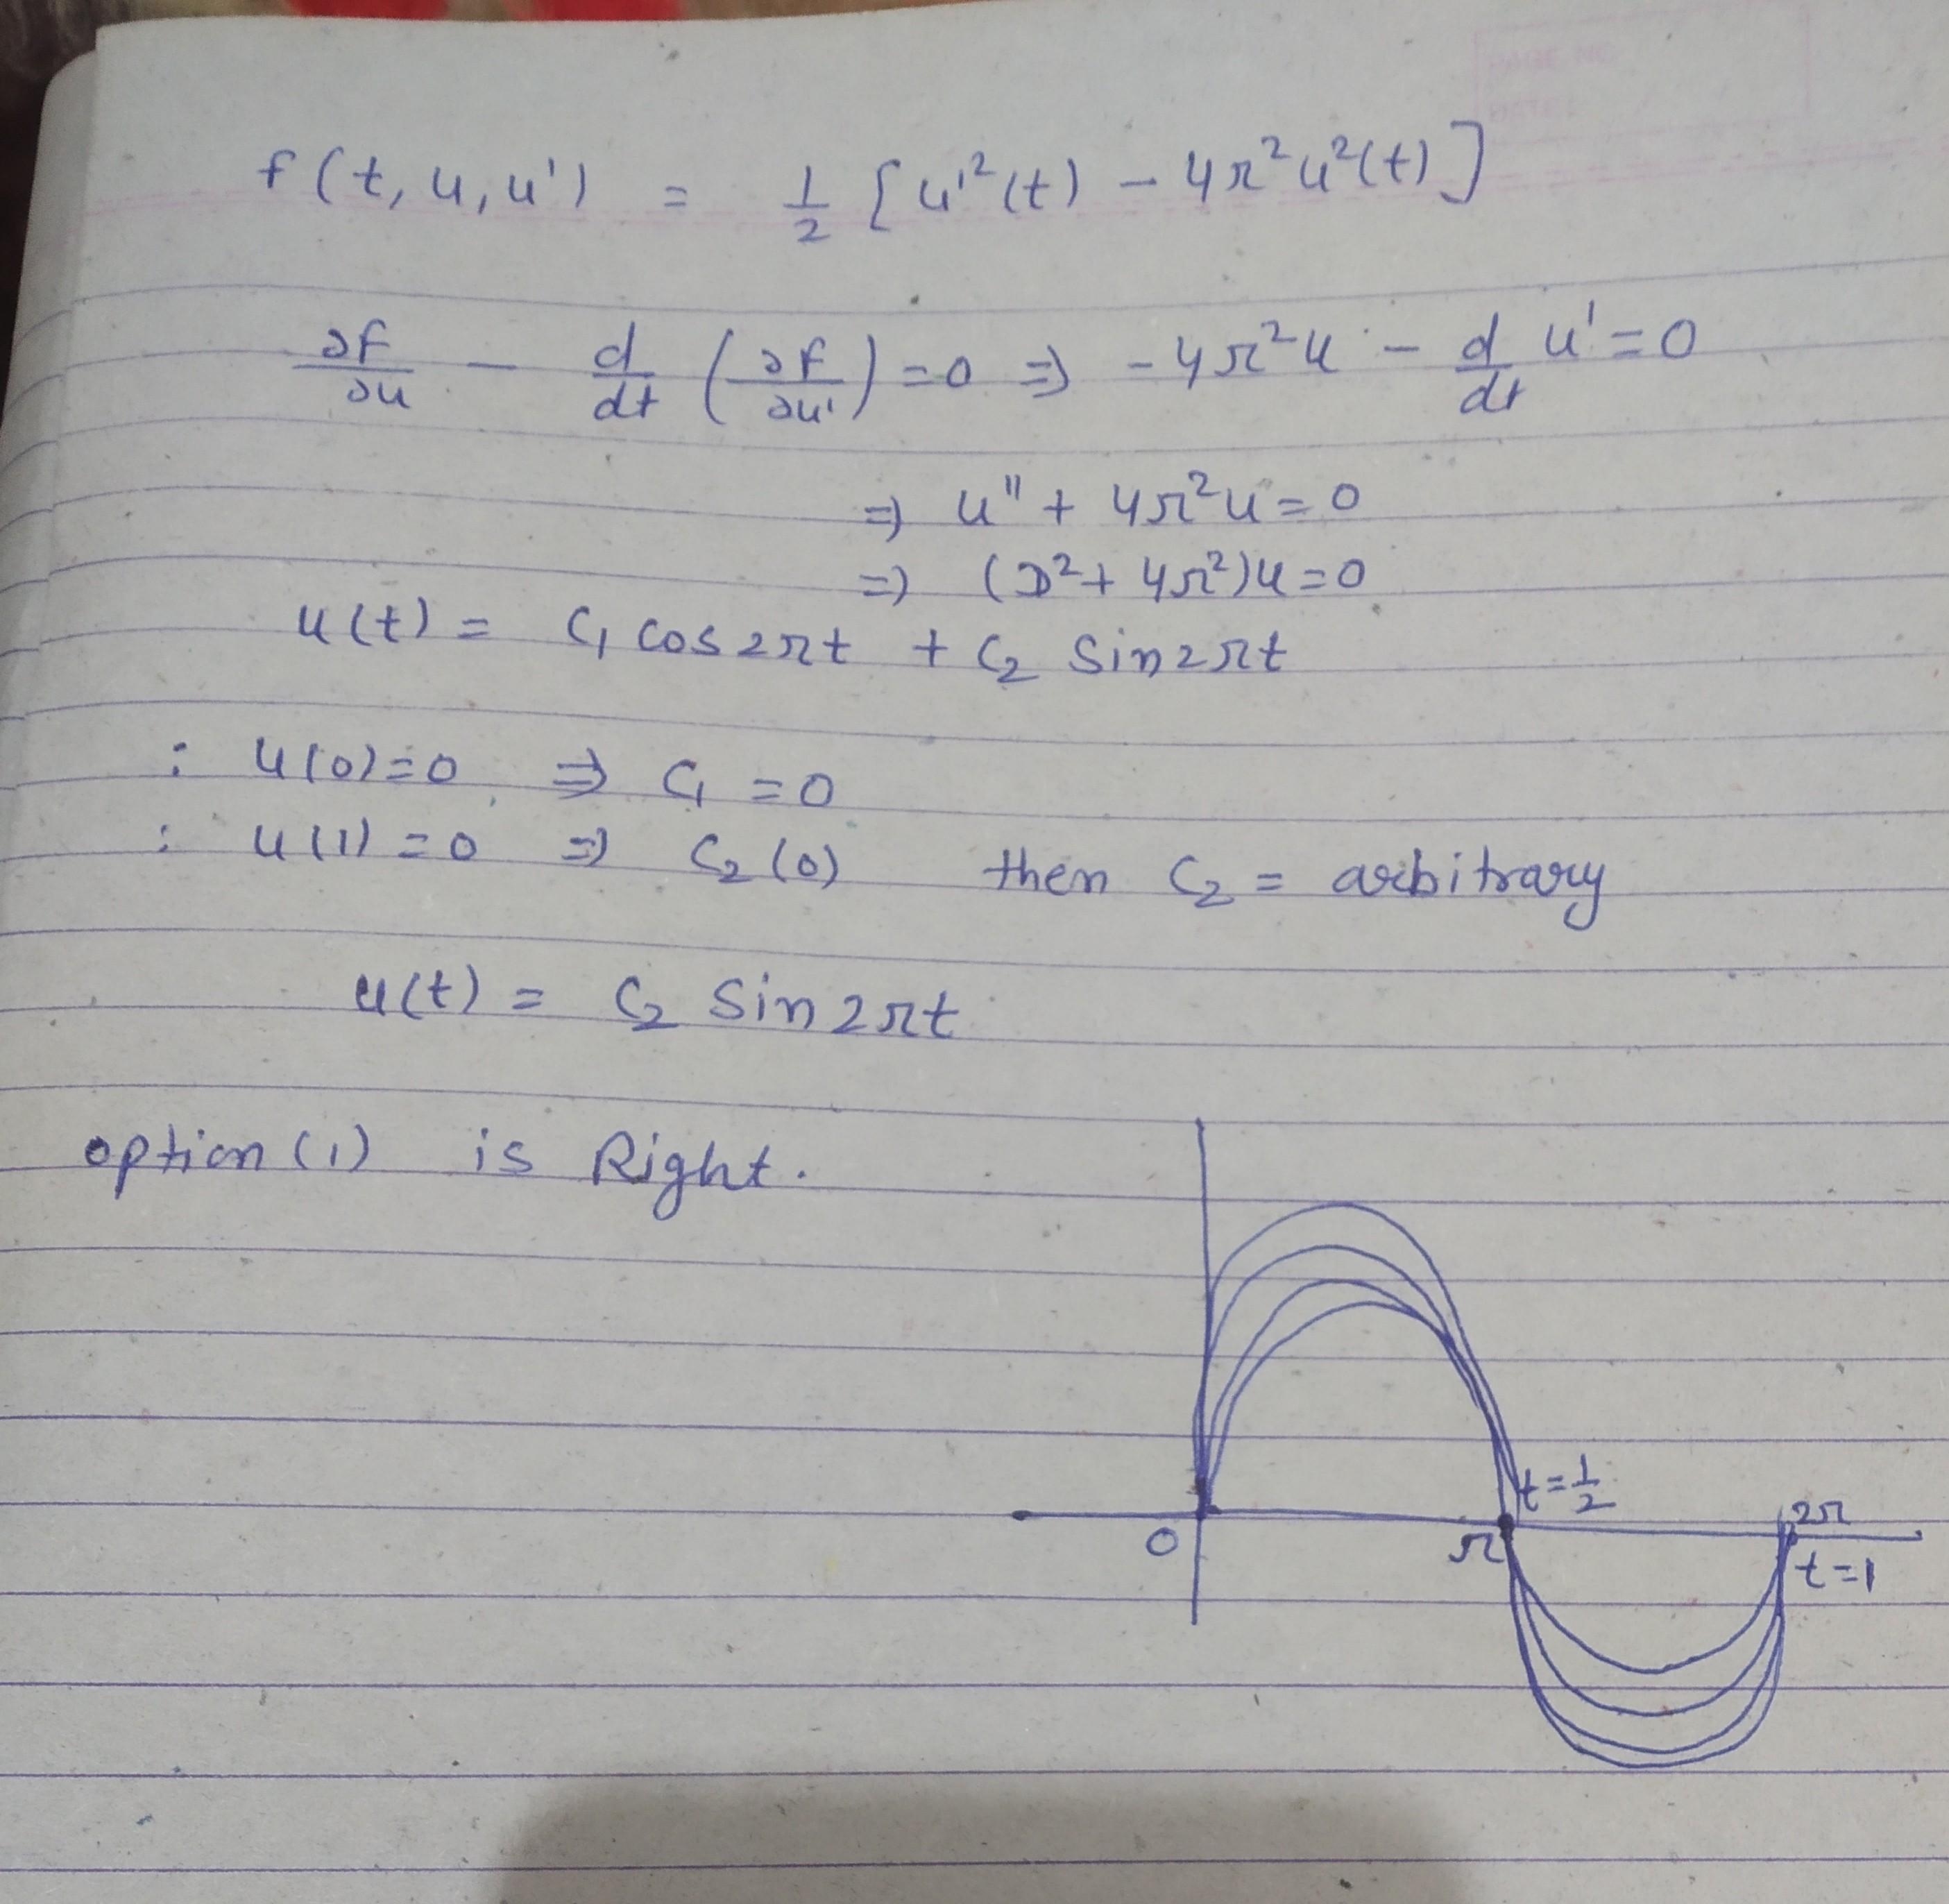 f(t, u, u') = 1/2 [u'²(t) - 4π²u²(t)]
∂f/∂u - d/dt (∂f/∂u') = 0 ⇒ -4π²u - d/dt u' = 0
⇒ u'' + 4π²u = 0
⇒ (D² + 4π²)u = 0
u(t) = C₁ cos2πt + C₂ Sin2πt
: u(0) = 0 ⇒ C₁ = 0
: u(1) = 0 ⇒ C₂(0) then C₂ = arbitrary
u(t) = C₂ Sin2πt
option (1) is Right.
t = 1/2
0 π 2π
t = 1